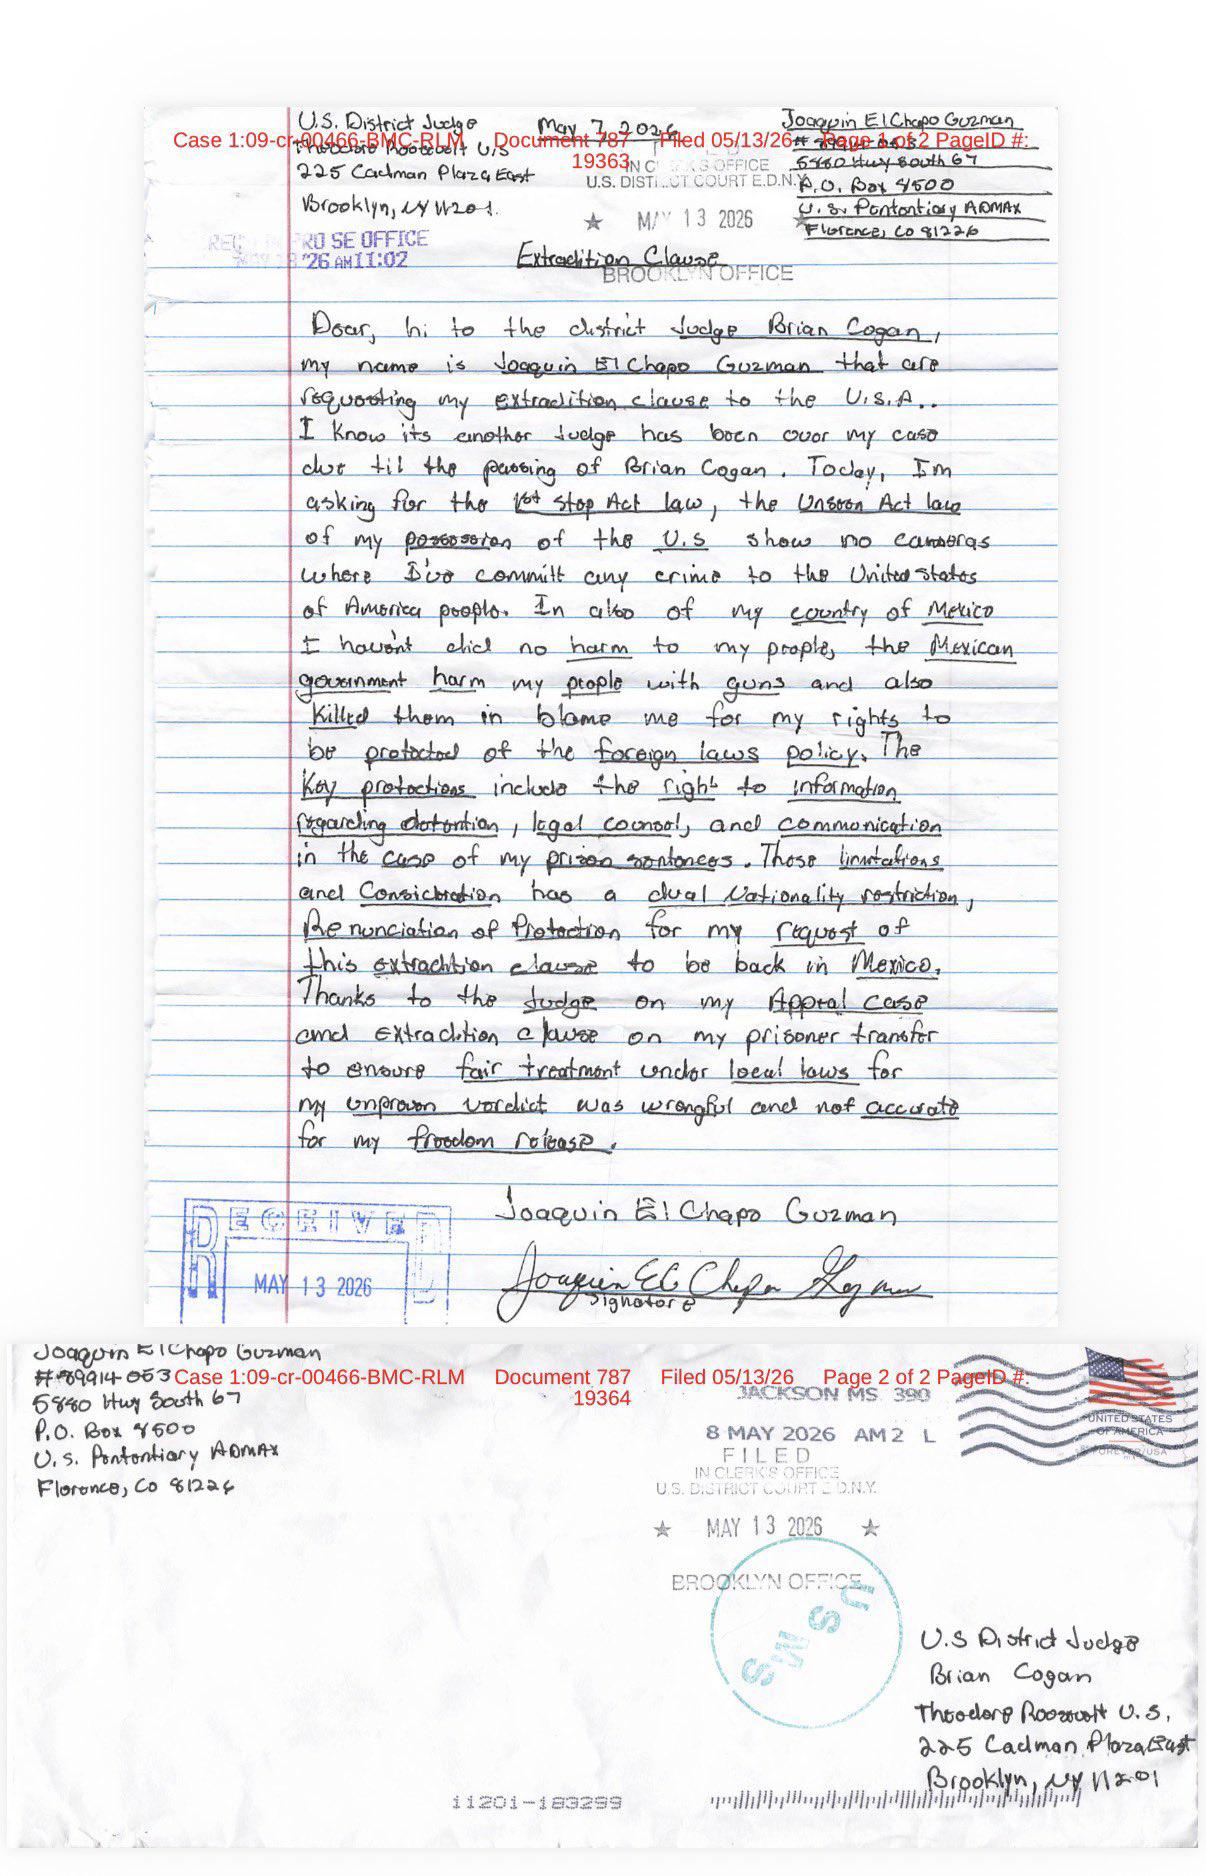 U.S. District Judge
May 7, 2026
Joaquin El Chapo Guzman
Case 1:09-cr-00466-BMC-RLM Document 787 Filed 05/13/26 Page 1 of 2 PageID #:
19363
Theodore Roosevelt U.S
225 Cadman Plaza East
Brooklyn, NY 11201.
5880 Hwy South 67
P.O. Box 8500
U.S. Pentontiary ADMAX
Florence, Co 81226
IN CLERK'S OFFICE
U.S. DISTRICT COURT E.D.N.Y.
★ MAY 13 2026 ★
BROOKLYN OFFICE
PRO SE OFFICE
'26 AM 11:02
Extradition Clause
Dear, hi to the district Judge Brian Cogan,
my name is Joaquin El Chapo Guzman that are
requesting my extradition clause to the U.S.A..
I know its another Judge has been over my case
due til the passing of Brian Cogan. Today, Im
asking for the 1st Stop Act law, the Unseen Act law
of my possession of the U.S show no cameras
where I've committ any crime to the United States
of America people. In also of my country of Mexico
I haven't did no harm to my people, the Mexican
government harm my people with guns and also
killed them in blame me for my rights to
be protected of the foreign laws policy. The
Key protections include the right to information
regarding detention, legal counsel, and communication
in the case of my prison sentences. Those limitations
and Consideration has a dual Nationality restriction,
Renunciation of Protection for my request of
this extradition clause to be back in Mexico.
Thanks to the Judge on my Appeal case
and extradition clause on my prisoner transfer
to ensure fair treatment under local laws for
my unproven verdict was wrongful and not accurate
for my freedom release.
Joaquin El Chapo Guzman
Joaquin El Chapo Guzman
Signature
RECEIVED
MAY 13 2026
Joaquin El Chapo Guzman
#89914-053
Case 1:09-cr-00466-BMC-RLM Document 787 Filed 05/13/26 Page 2 of 2 PageID #:
19364
5880 Hwy South 67
P.O. Box 8500
U.S. Pentontiary ADMAX
Florence, Co 81226
JACKSON MS 390
8 MAY 2026 AM 2 L
FILED
IN CLERK'S OFFICE
U.S. DISTRICT COURT E.D.N.Y.
★ MAY 13 2026 ★
BROOKLYN OFFICE
UNITED STATES
OF AMERICA
FOREVER/USA
USMS
U.S District Judge
Brian Cogan
Theodore Roosevelt U.S.
225 Cadman Plaza East
Brooklyn, NY 11201
11201-183299